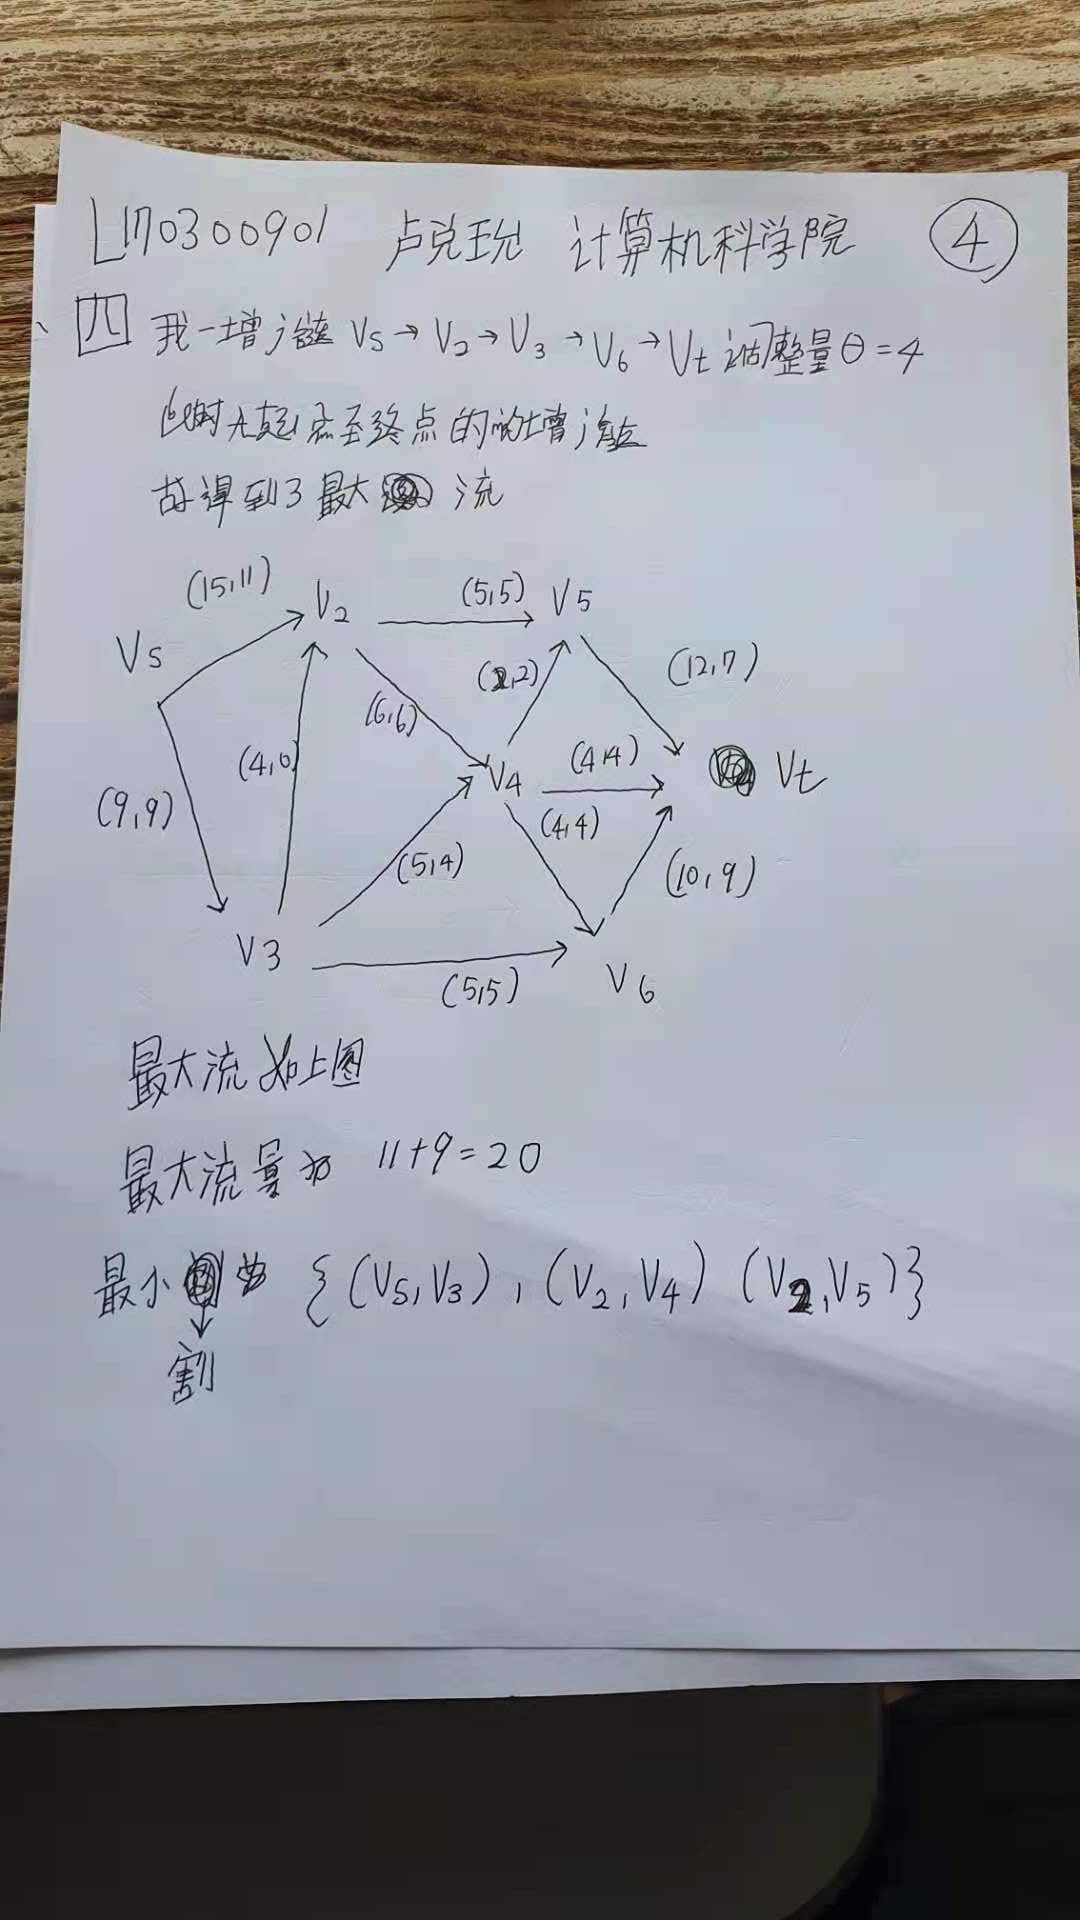 L170300901 卢 计算机科学院 ④
四 我一增广链 Vs→V2→V3→V6→Vt 调整量θ=4
此时无起点至终点的的增广链
故得到了最大 流
(15,11) V2 (5,5) V5
Vs (2,2) (12,7)
(6,6)
(4,0) V4 (4,4) Vt
(9,9) (4,4)
(5,4) (10,9)
V3
(5,5) V6
最大流如上图
最大流量为 11+9=20
最小 为 {(Vs,V3),(V2,V4) (V2,V5)}
割